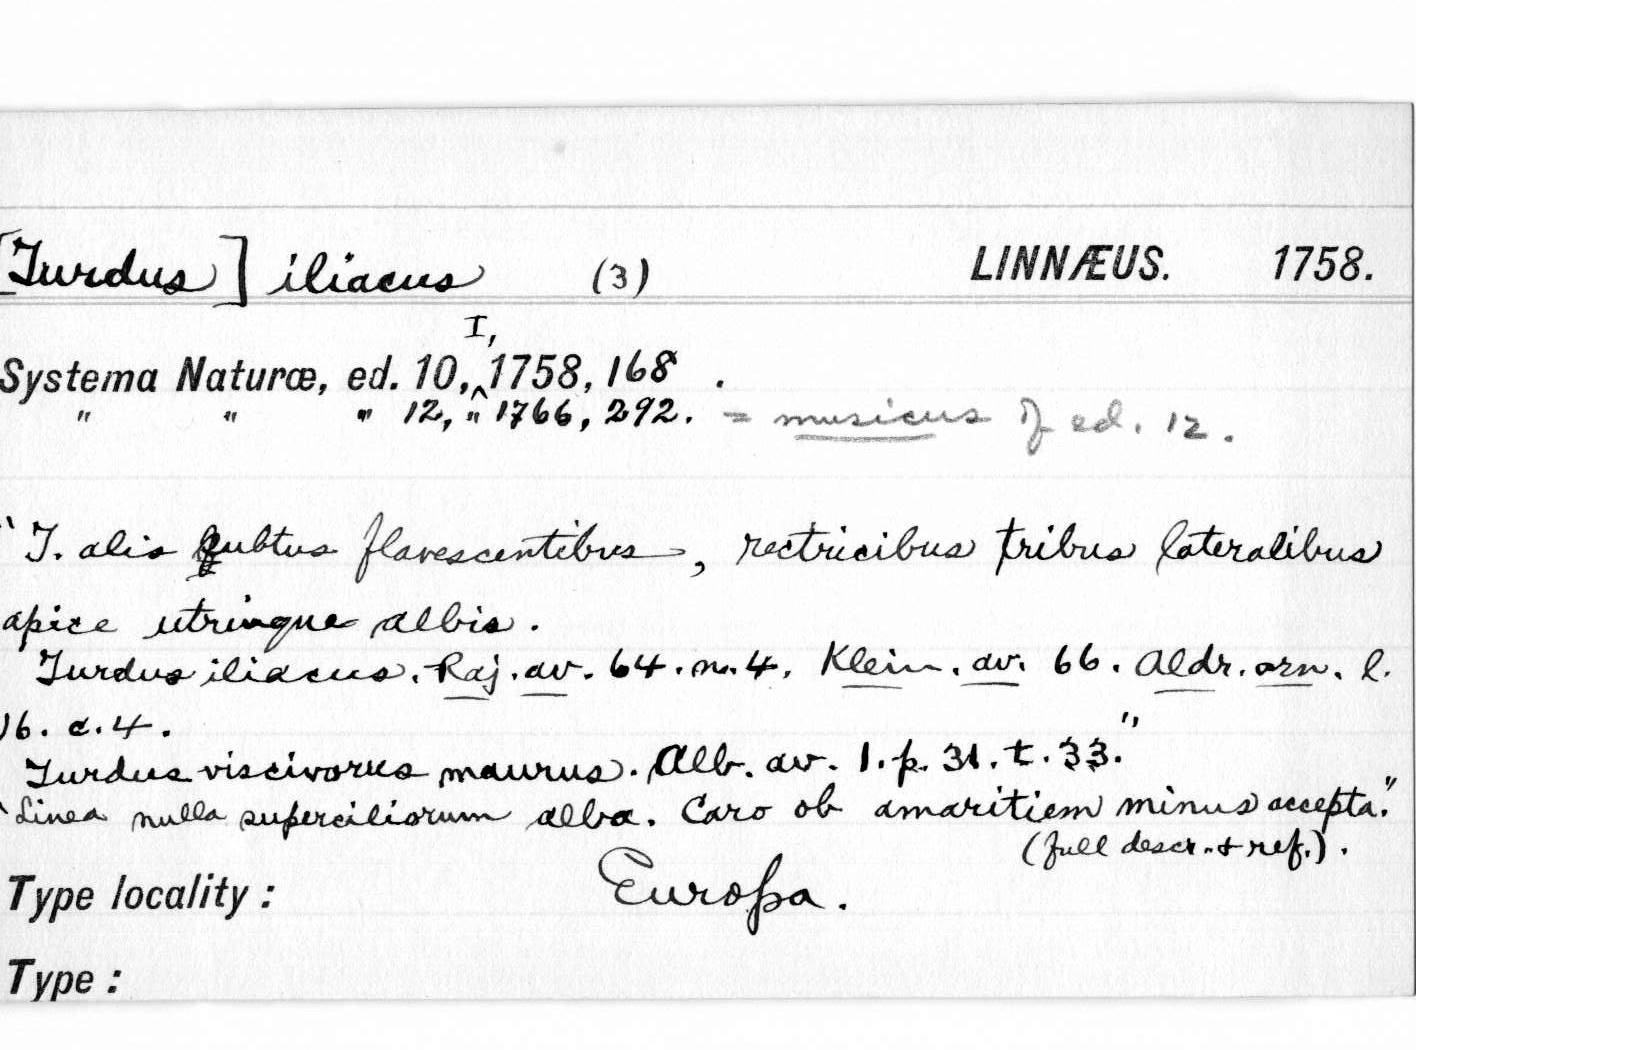 [Turdus] iliacus (3) LINNÆUS. 1758.
I,
Systema Naturæ, ed. 10, ^ 1758, 168 .
" " " 12, " 1766, 292. = musicus of ed. 12.
"T. alis subtus flavescentibus, rectricibus tribus lateralibus
apice utrinque albis.
Turdus iliacus. Raj. av. 64. n. 4. Klein. av. 66. Aldr. orn. l.
16. c. 4.
Turdus viscivorus maurus. Alb. av. 1. p. 31. t. 33."
"Linea nulla superciliorum alba. Caro ob amaritiem minus accepta."
(full descr. & ref.).
Type locality : Europa.
Type :